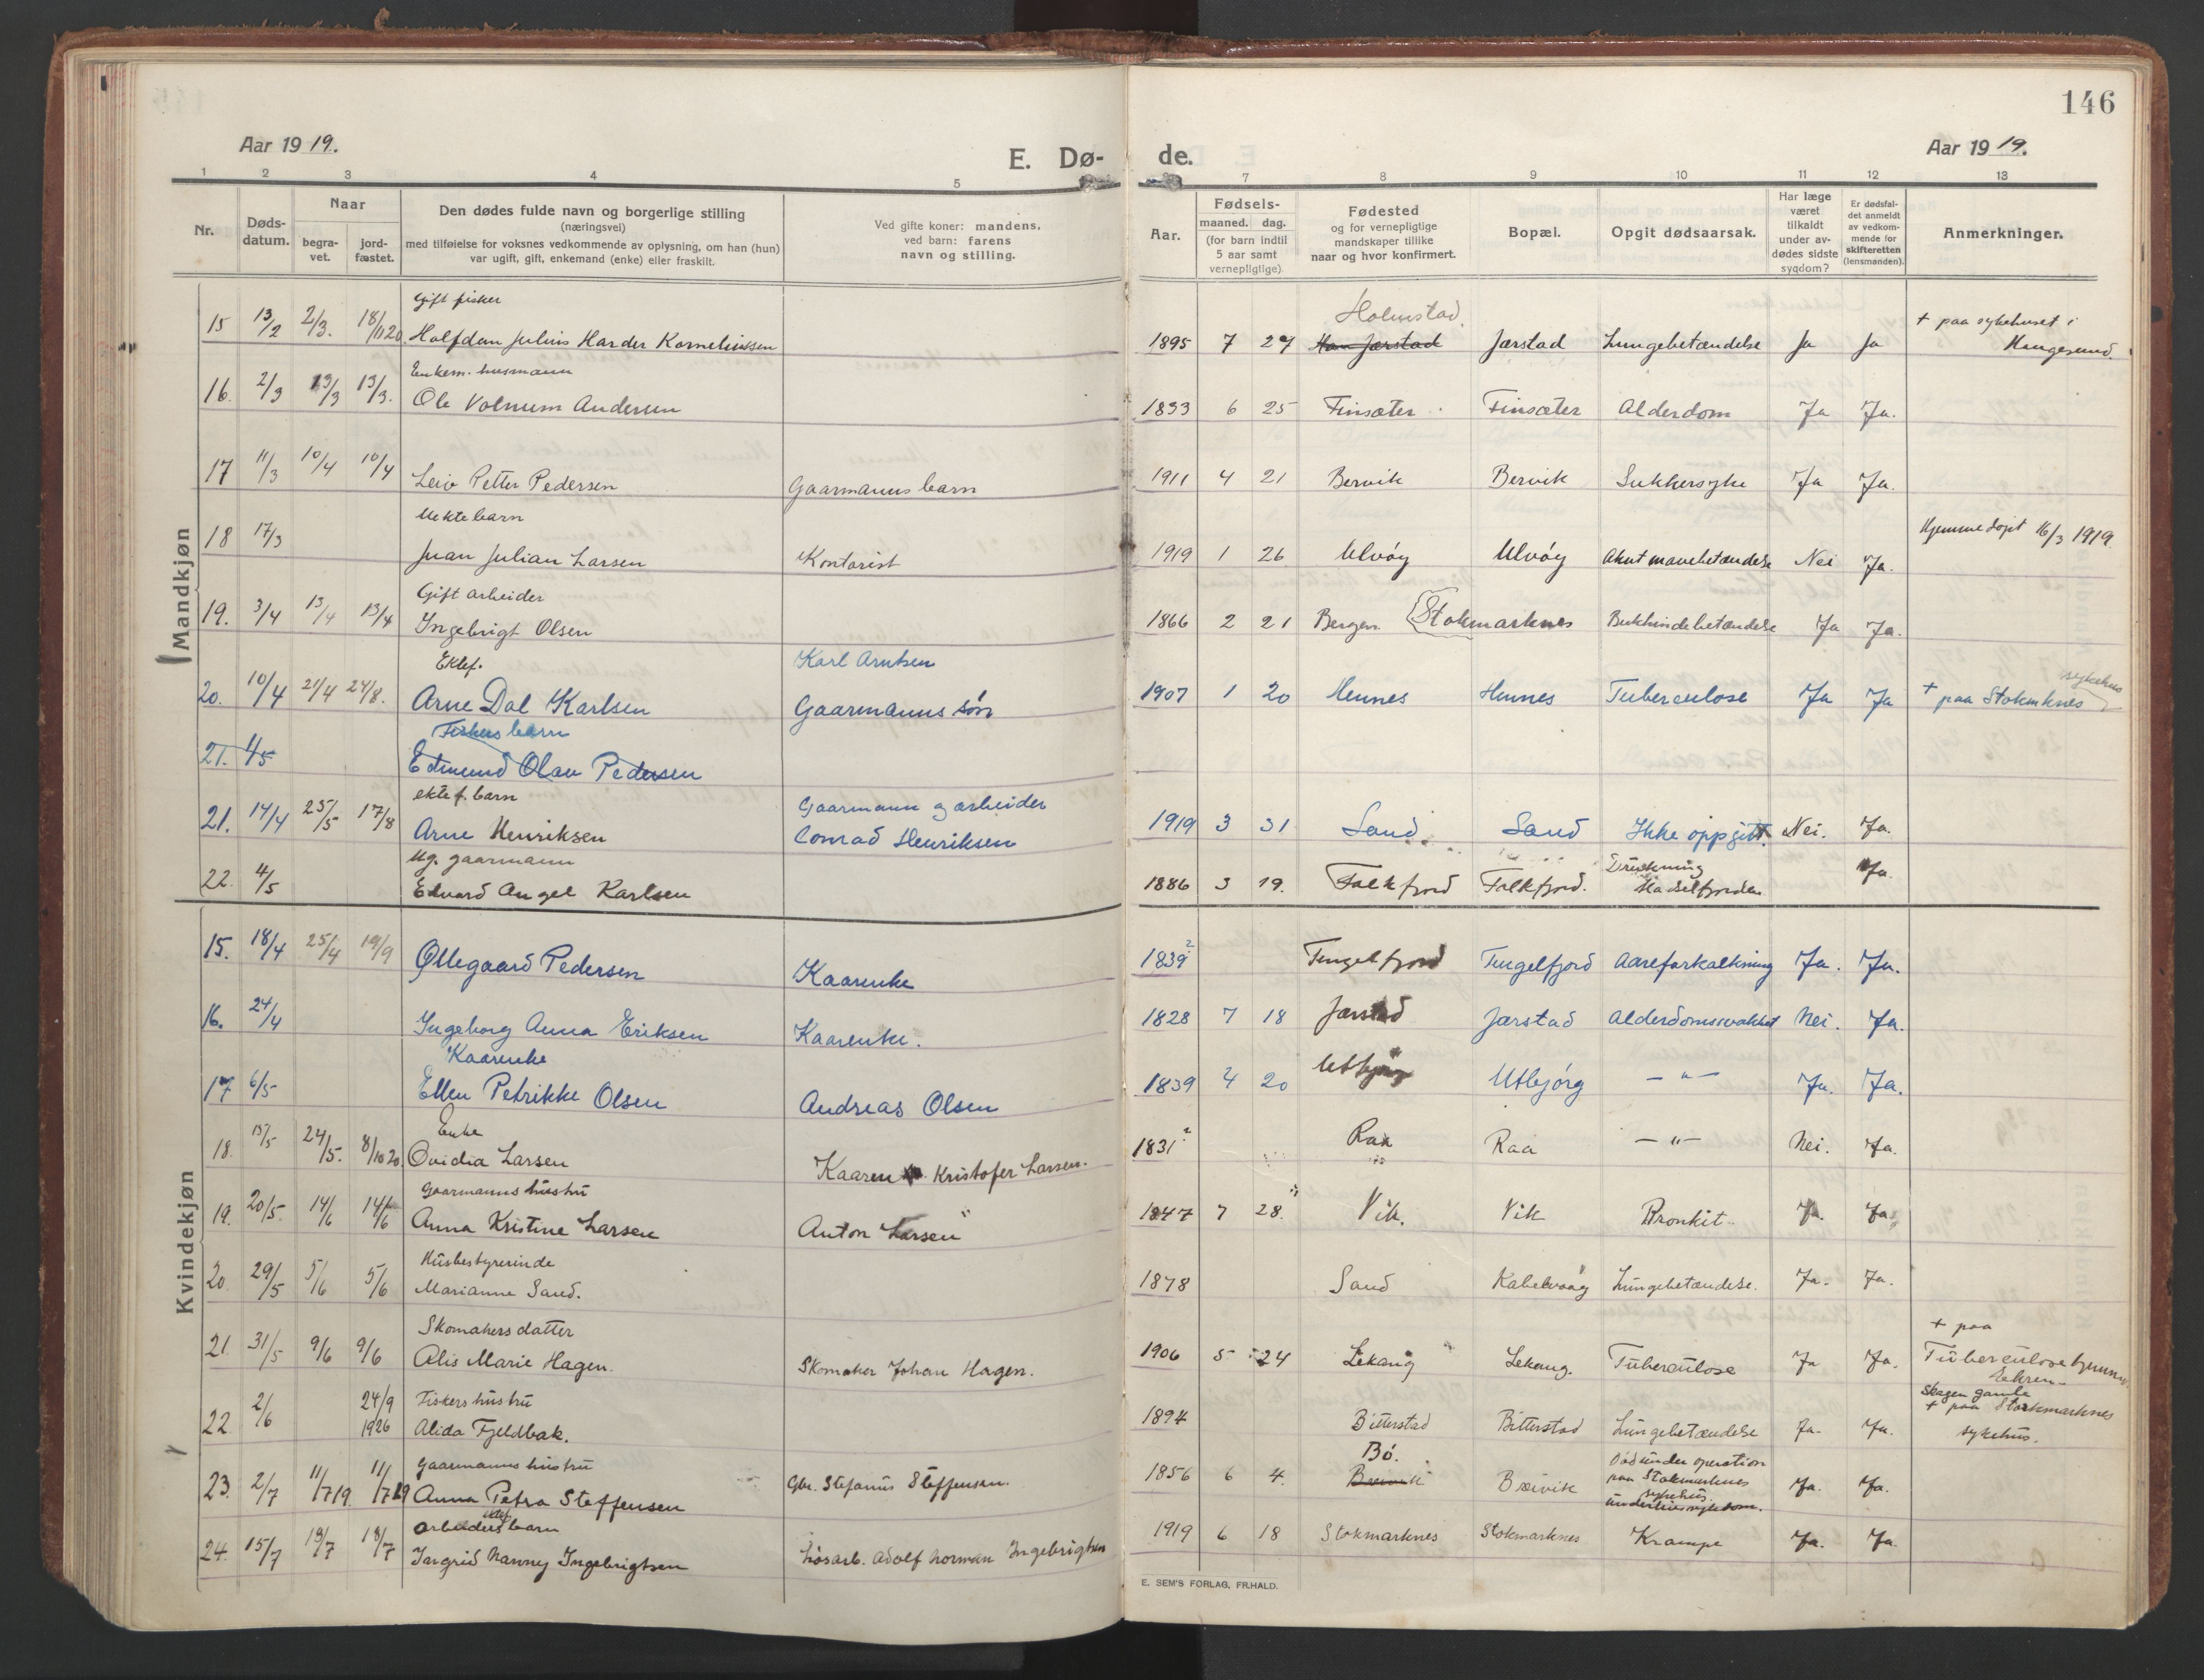 146
Aar 1919.
E. Dø-
de.
Aar 1919.
1 2 3 4 5
7 8 9 10 11 12 13
Nr.
Døds-
datum.
Naar
begra-
vet.
jord-
fæstet.
Den dødes fulde navn og borgerlige stilling
(næringsvei)
med tilføielse for voksnes vedkommende av oplysning, om han (hun)
var ugift, gift, enkemand (enke) eller fraskilt.
Ved gifte koner: mandens,
ved barn: farens
navn og stilling.
Aar.
Fødsels-
maaned. dag.
(for barn indtil
5 aar samt
vernepligtige).
Fødested
og for vernepligtige
mandskaper tillike
naar og hvor konfirmert.
Bopæl.
Opgit dødsaarsak.
Har læge
været
tilkaldt
under av-
dødes sidste
sygdom?
Er dødsfal-
det anmeldt
av vedkom-
mende for
skifteretten
(lensmanden).
Anmerkninger.
Mandkjøn
Gift fisker Holmstad + paa sykehuset i
15 13/2 2/3. 18/11 20. Halfdan Julius Harder Korneliussen 1895 7 27 Jærstad Jærstad Lungebetændelse Ja Ja Haugesund.
Enkem. husmann
16. 2/3 13/3 13/3. Ole Volnum Andersen 1833 6 25 Finsæter Finsæter Alderdom Ja Ja.
17 11/3 10/4 10/4 Leiv Petter Pedersen Gaarmanns barn 1911 4 21 Bervik Bervik Sukkersyke Ja Ja.
Uekte barn Hjemmedøpt 16/3 1919
18 17/3 Juan Julian Larsen Kontorist 1919 1 26 Ulvøy Ulvøy Akut mavebetændelse Nei Ja.
Gift arbeider
19. 3/4 13/4 13/4 Ingebrigt Olsen 1866 2 21 Bergen Stokmarknes Bukhindebetændelse Ja Ja.
Ektef. Karl Arntsen sykehus
20. 10/4 21/4 24/8. Arne Dal Karlsen Gaarmanns søn 1907 1 20 Hennes Hennes Tuberculose Ja Ja + paa Stokmknes
Fiskers barn
21. 4/5 Edmund Olav Pedersen
ektef. barn Gaarmann og arbeider
21. 14/4 25/5 17/8 Arne Henriksen Conrad Henriksen 1919 3 31 Sand Sand Ikke oppgitt. Nei. Ja.
Ug. gaarmann Drukning
22. 4/5 Edvard Angel Karlsen 1886 3 19. Falkfjord Falkfjord. Hadselfjorden Ja.
Kvindekjøn
15. 18/4 25/4 19/9 Ollegaard Pedersen Kaarenke 1839? Tengelfjord Tengelfjord Aareforkalkning Ja. Ja.
16. 24/4 Ingeborg Anna Eriksen Kaarenke. 1828 7 18 Jærstad Jærstad Alderdomssvakhet Nei. Ja.
Kaarenke
17 6/5 Ellen Petrikke Olsen Andreas Olsen 1839 4 20 Utbjørg Utbjørg — " — Ja. Ja.
Enke
18. 15/5 24/5. 8/10 20. Ovidia Larsen Kaaren Kristofer Larsen. 1831? Raa Raa — " — Nei. Ja.
Gaarmanns hustru
19. 20/5. 14/6 14/6 Anna Kristine Larsen Anton Larsen 1847 7 28. Vik. Vik Bronkit. Ja. Ja.
Husbestyrerinde
20. 29/5 5/6 5/6 Marianne Sand. 1878 Sand Kabelvaag Lungebetændelse. Ja. Ja.
Skomakers datter + paa
21. 31/5 9/6 9/6 Alis Marie Hagen. Skomaker Johan Hagen. 1906 5 24 Lekang Lekang. Tuberculose Ja Ja. Tuberculosehjemmet
Ekren
2/6 24/9 Fiskers hustru Skagen gamle
22. 1926 Alida Fjeldbak. 1894 Bitterstad Bitterstad Lungebetændelse Ja. Ja. + paa Stokmarknes
sykehus.
Gaarmanns hustru Bø. Død under operation
23. 2/7 11/7 19. 11/7 19 Anna Petra Steffensen Gbr. Stefanus Steffensen. 1856 6 4. Breivik Breivik paa Stokmarknes Ja. Ja.
sykehus.
underlivssykdom.
Arbeiders ektef. barn
24. 15/7 19/7 19/7 Jargrid Nanny Ingebrigtsen Løsarb. Adolf Norman Ingebrigtsen 1919 6 18 Stokmarknes Stokmarknes Krampe Ja. Ja.
E. SEM'S FORLAG, FR.HALD.